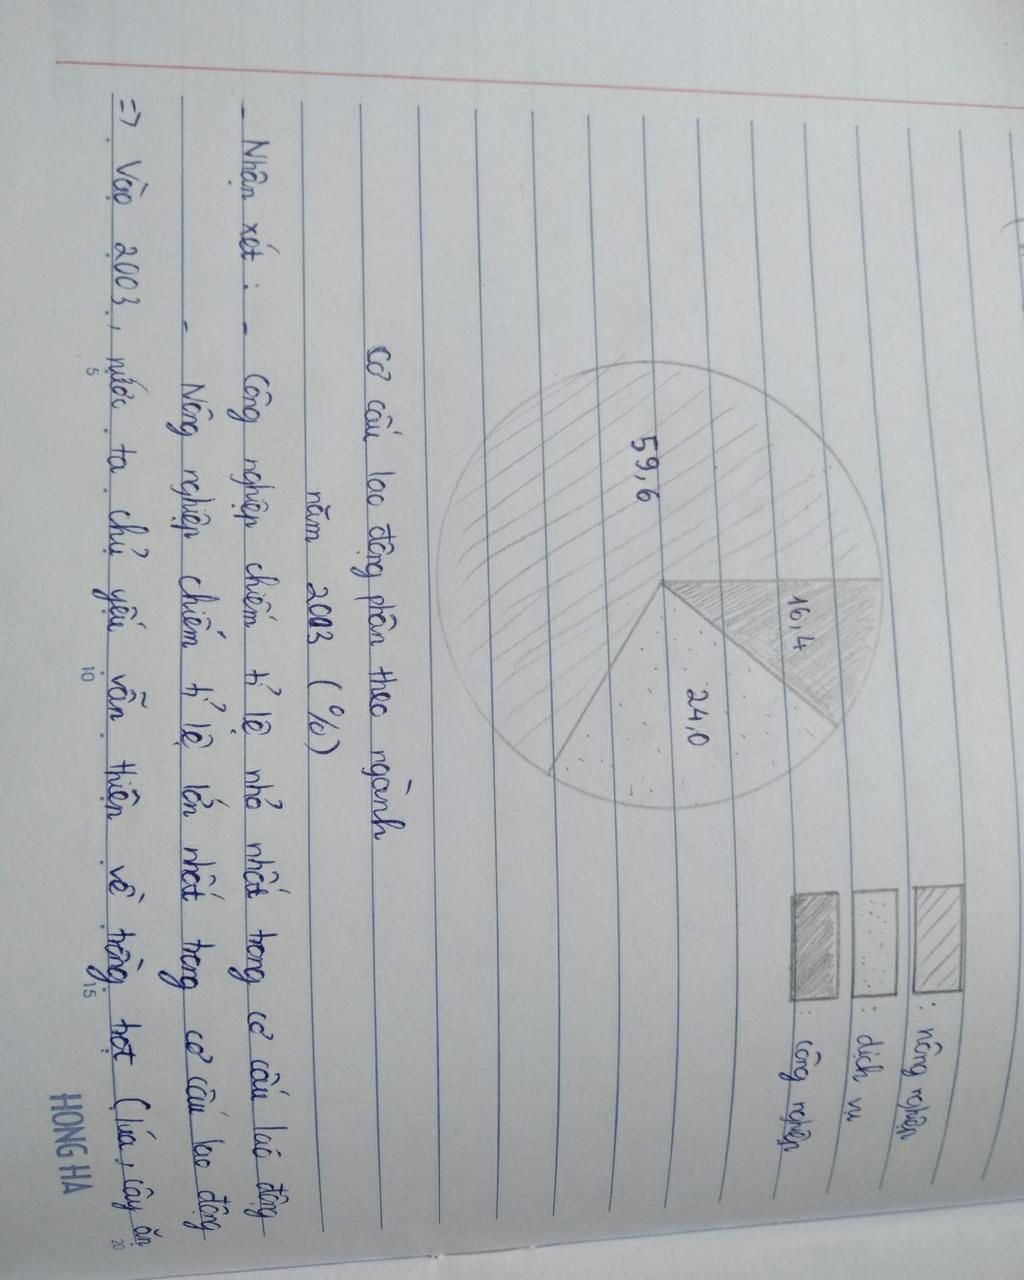 : nông nghiệp
: dịch vụ
: công nghiệp
16,4
59,6
24,0
Cơ cấu lao động phân theo ngành
năm 2003 (%)
- Nhận xét : - Công nghiệp chiếm tỉ lệ nhỏ nhất trong cơ cấu lao động
- Nông nghiệp chiếm tỉ lệ lớn nhất trong cơ cấu lao động
=> Vào 2003, nước ta chủ yếu vẫn thiên về trồng trọt (lúa, cây ăn
5 10 15 20
HONG HA